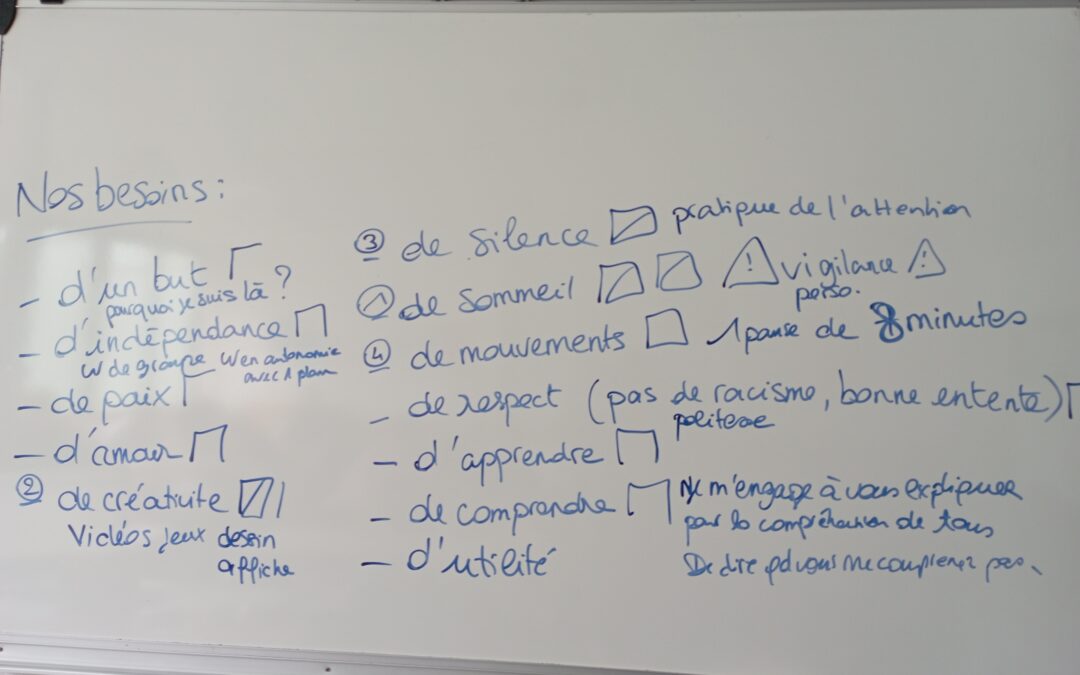 Nos besoins :
- d'un but
pourquoi je suis là ?
- d'indépendance
W de groupe W en autonomie
avec 1 plan
- de paix
- d'amour
② de créativite
Vidéos jeux dessin
affiche
③ de silence pratique de l'attention
① de sommeil ! vigilance !
perso.
④ de mouvements 1 pause de 8 minutes
- de respect (pas de racisme, bonne entente)
politesse
- d'apprendre
- de comprendre Je m'engage à vous expliquer
pour la compréhension de tous
- d'utilité De dire qd vous ne comprenez pas.